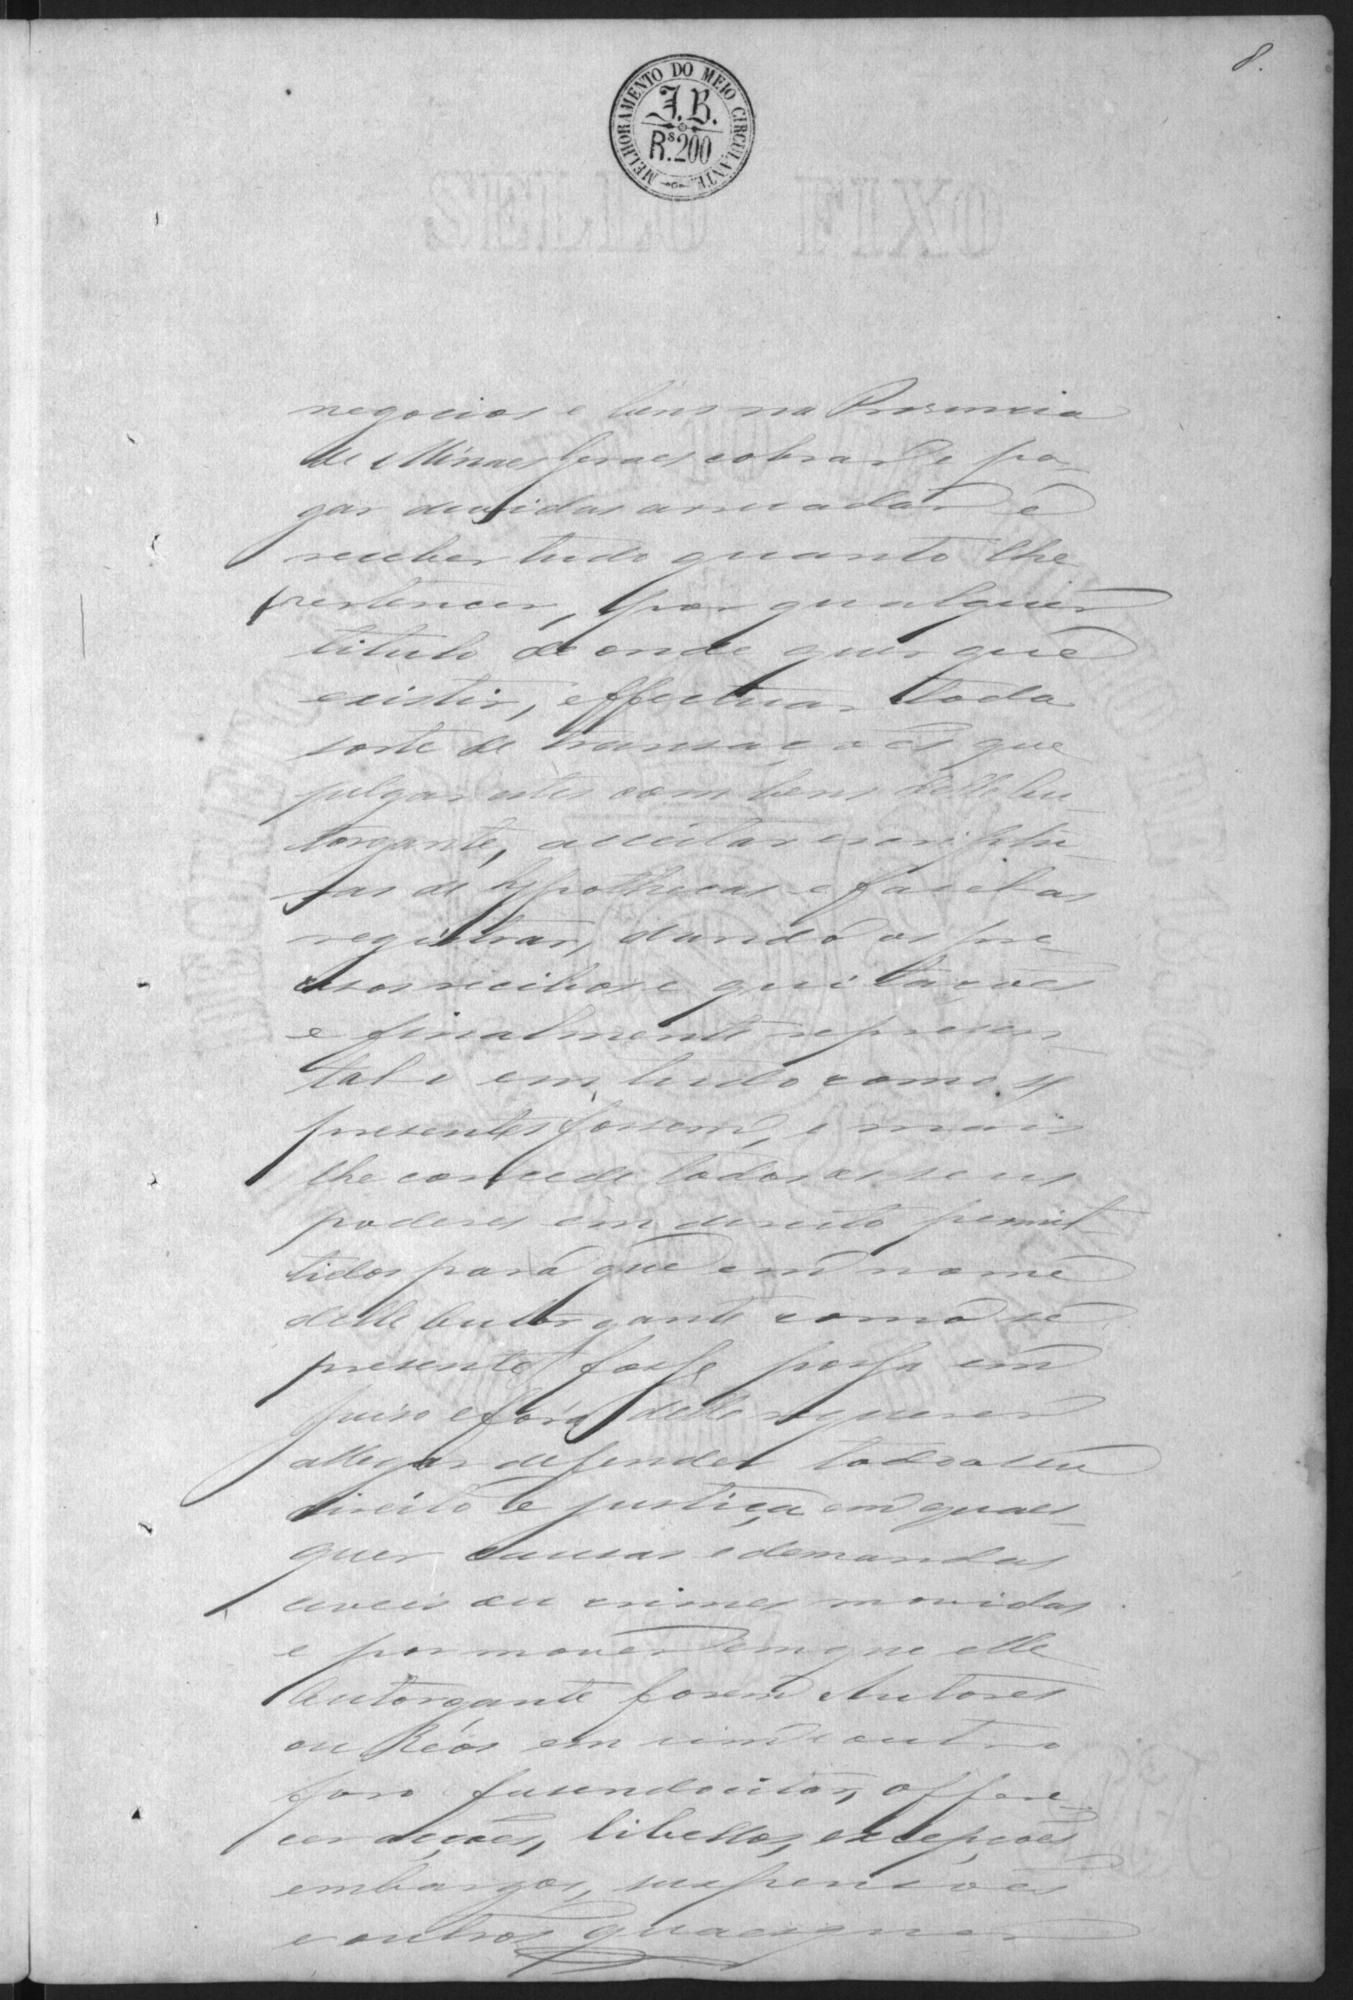 8.
MELHORAMENTO DO MEIO CIRCULANTE
J.B.
Rs.200
SELLO FIXO
negocios e bens na Provincia
de Minas Geraes cobrar e pa-
gar dividas arrecadar e
receber tudo quanto lhe
pertencer, por qualquer
titulo de onde quer que
existir, effectuar toda
sorte de transaçoes que
julgar uteis com bens delle Ou-
torgante, acceitar escriptu-
ras de hypothecas e fazel as
registrar, dando os pre-
cisos recibos e quitações
e finalmente represen-
tal o em tudo como se
presentes fossem, e mais
lhe concede todos os seus
poderes em direito permit
tidos para que em nome
delle Outorgante como se
presente fosse possa em
juiso e fóra delle requerer
allegar defender todo o seu
direito e justiça em quaes-
quer causas e demandas
civeis ou crimes movidas
e por mover em que elle
Outorgante forem Autores
ou Réos em um e outro
foro fasendo citar, offere-
cer acções, libellos, excepções
embargos, suspensões
e outros quaesquer